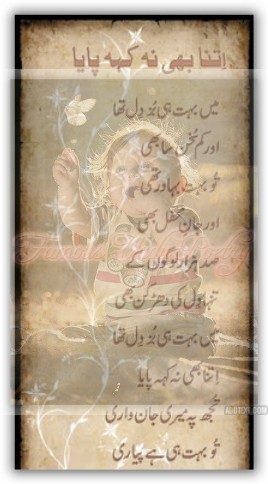 اِتنا بھی نہ کہہ پایا
میں بہت ہی بُزدِل تھا
اور کم سُخن سا بھی
تُو بہت بہادر تھی
اور جانِ محفل بھی
صد ہزار لوگوں کے
تنہا دِل کی دھڑکن بھی
میں بہت ہی بُزدِل تھا
اِتنا بھی نہ کہہ پایا
تُجھ پہ میری جان واری
تُو بہت ہی ہے پیاری